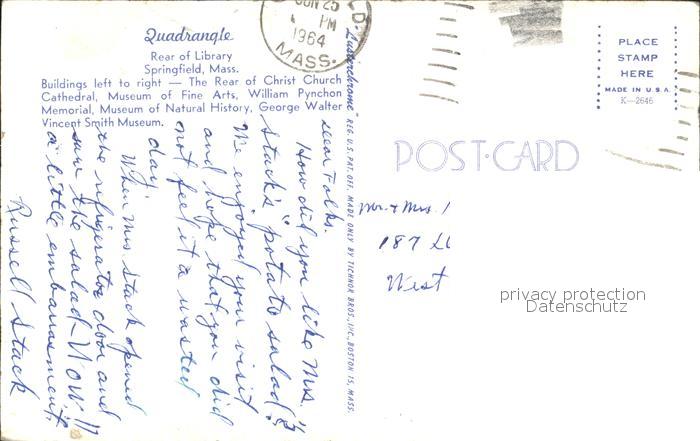 Quadrangle
Rear of Library
Springfield, Mass.
Buildings left to right — The Rear of Christ Church
Cathedral, Museum of Fine Arts, William Pynchon
Memorial, Museum of Natural History, George Walter
Vincent Smith Museum.
JUN 25
PM
1964
MASS.
Dear Folks.
How did you like Mrs.
Stack's "potato salad"?
We enjoyed your visit
and hope that you did
not feel it a wasted
day.
When Mrs Stack opened
the refrigerator door and
saw the salad - Wow!!
a little embarrassment.
Russell Stack
"Lusterchrome" REG. U.S. PAT. OFF. MADE ONLY BY TICHNOR BROS., INC., BOSTON 15, MASS.
PLACE
STAMP
HERE
MADE IN U.S.A.
K-2646
POST-CARD
Mr. & Mrs.
187
West
privacy protection
Datenschutz